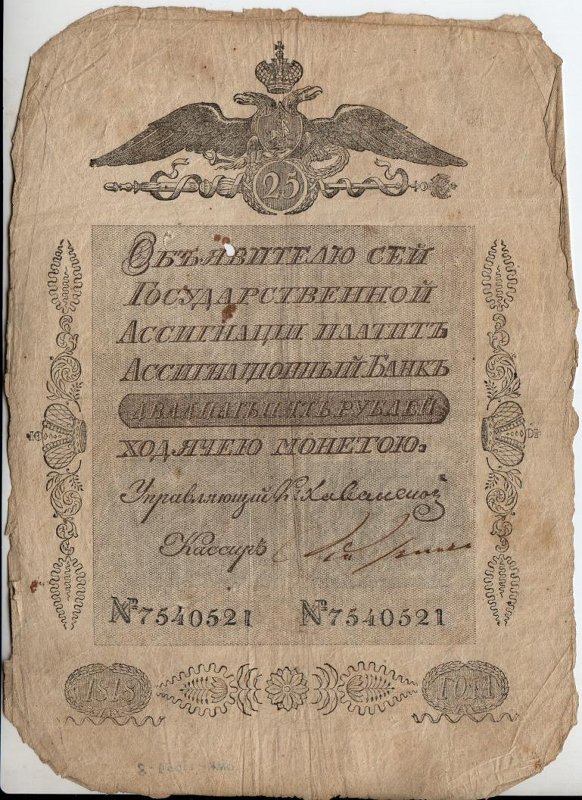 25
Объявителю сей
Государственной
Ассигнаціи платитъ
Ассигнаціонный Банкъ
двадцать пять рублей
ходячею монетою.
Управляющій К. Хованской
Кассиръ
№ 7540521 № 7540521
1818